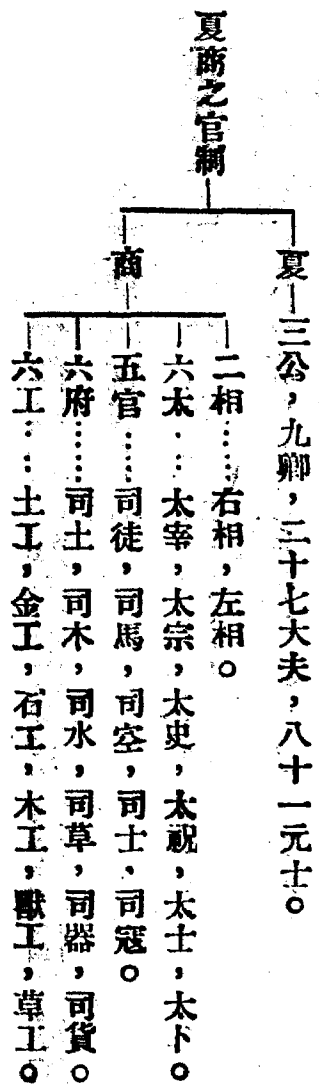 夏商之官制
夏
三公，九卿，二十七大夫，八十一元士。
商
二相……右相，左相。
六太……太宰，太宗，太史，太祝，太士，太卜。
五官……司徒，司馬，司空，司士、司寇。
六府……司土，司木，司水，司草，司器，司貨。
六工……土工，金工，石工，木工，獸工，草工。